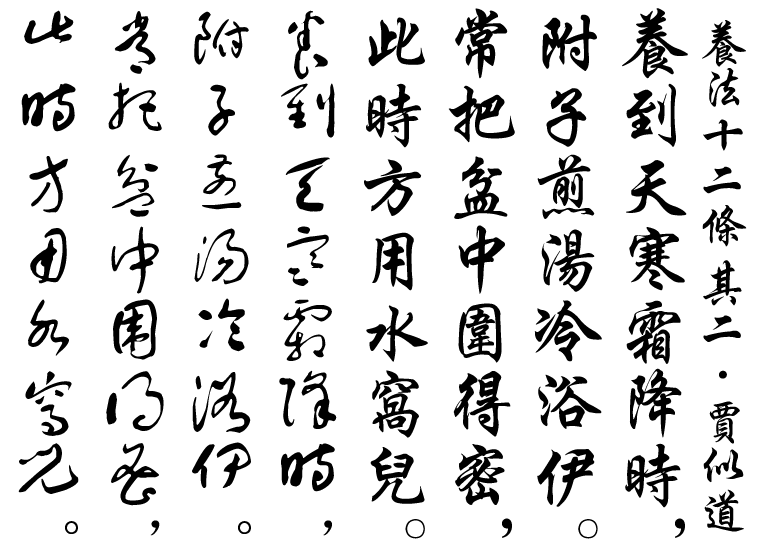 養法十二條其二·賈似道
養到天寒霜降時，
附子煎湯冷浴伊。
常把盆中圍得密，
此時方用水窩兒。
養到天寒霜降時，
附子煎湯冷浴伊。
常把盆中圍得密，
此時方用水窩兒。